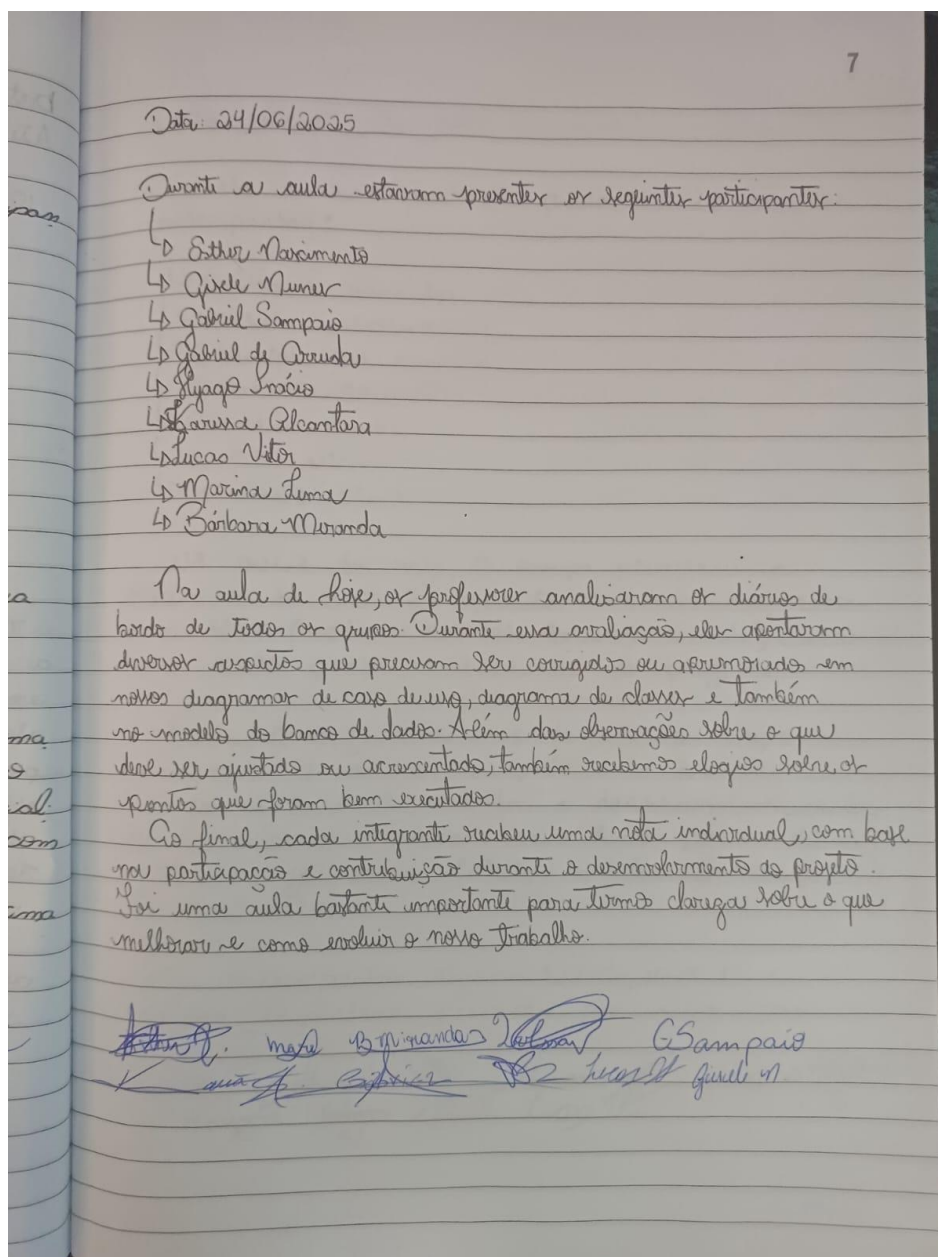 7
Data: 24/06/2025
Durante a aula estavam presentes os seguintes participantes:
Esther Nascimento
Gisele Nunes
Gabriel Sampaio
Gabriel de Arruda
Hyago Inácio
Karissa Alcantara
Lucas Vitor
Marina Lima
Bárbara Miranda
pan
Na aula de hoje, os professores analisaram os diários de
bordo de todos os grupos. Durante essa avaliação, eles apontaram
diversos aspectos que precisam ser corrigidos ou aprimorados em
nossos diagramas de caso de uso, diagrama de classes e também
no modelo do banco de dados. Além das observações sobre o que
deve ser ajustado ou acrescentado, também recebemos elogios sobre os
pontos que foram bem executados.
Ao final, cada integrante recebeu uma nota individual, com base
na participação e contribuição durante o desenvolvimento do projeto.
Foi uma aula bastante importante para termos clareza sobre o que
melhorar e como evoluir o nosso trabalho.
a
ma
o
al.
com
ima
BMiranda GSampaio